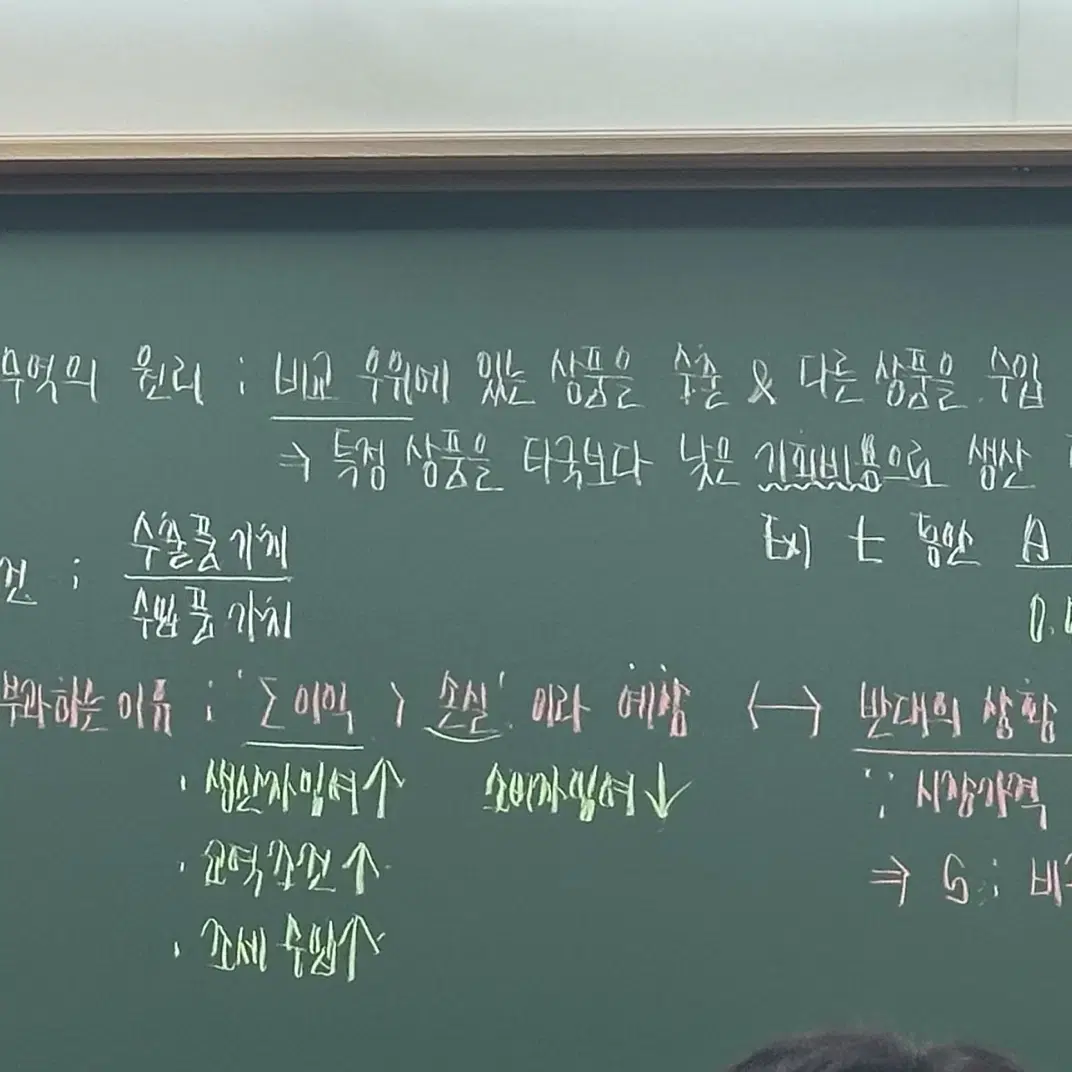 무역의 원리 : 비교 우위에 있는 상품을 수출 & 다른 상품을 수입
⇒ 특정 상품을 타국보다 낮은 기회비용으로 생산
건 : 수출품 가치
수입품 가치
t 동안 A
0.
부과하는 이유 : ‘∑ 이익 > 손실’ 이라 예상 ↔ 반대의 상황
· 생산자잉여↑ 소비자잉여↓
∵ 시장가격
· 교역조건↑
⇒ G : 비
· 조세 수입↑